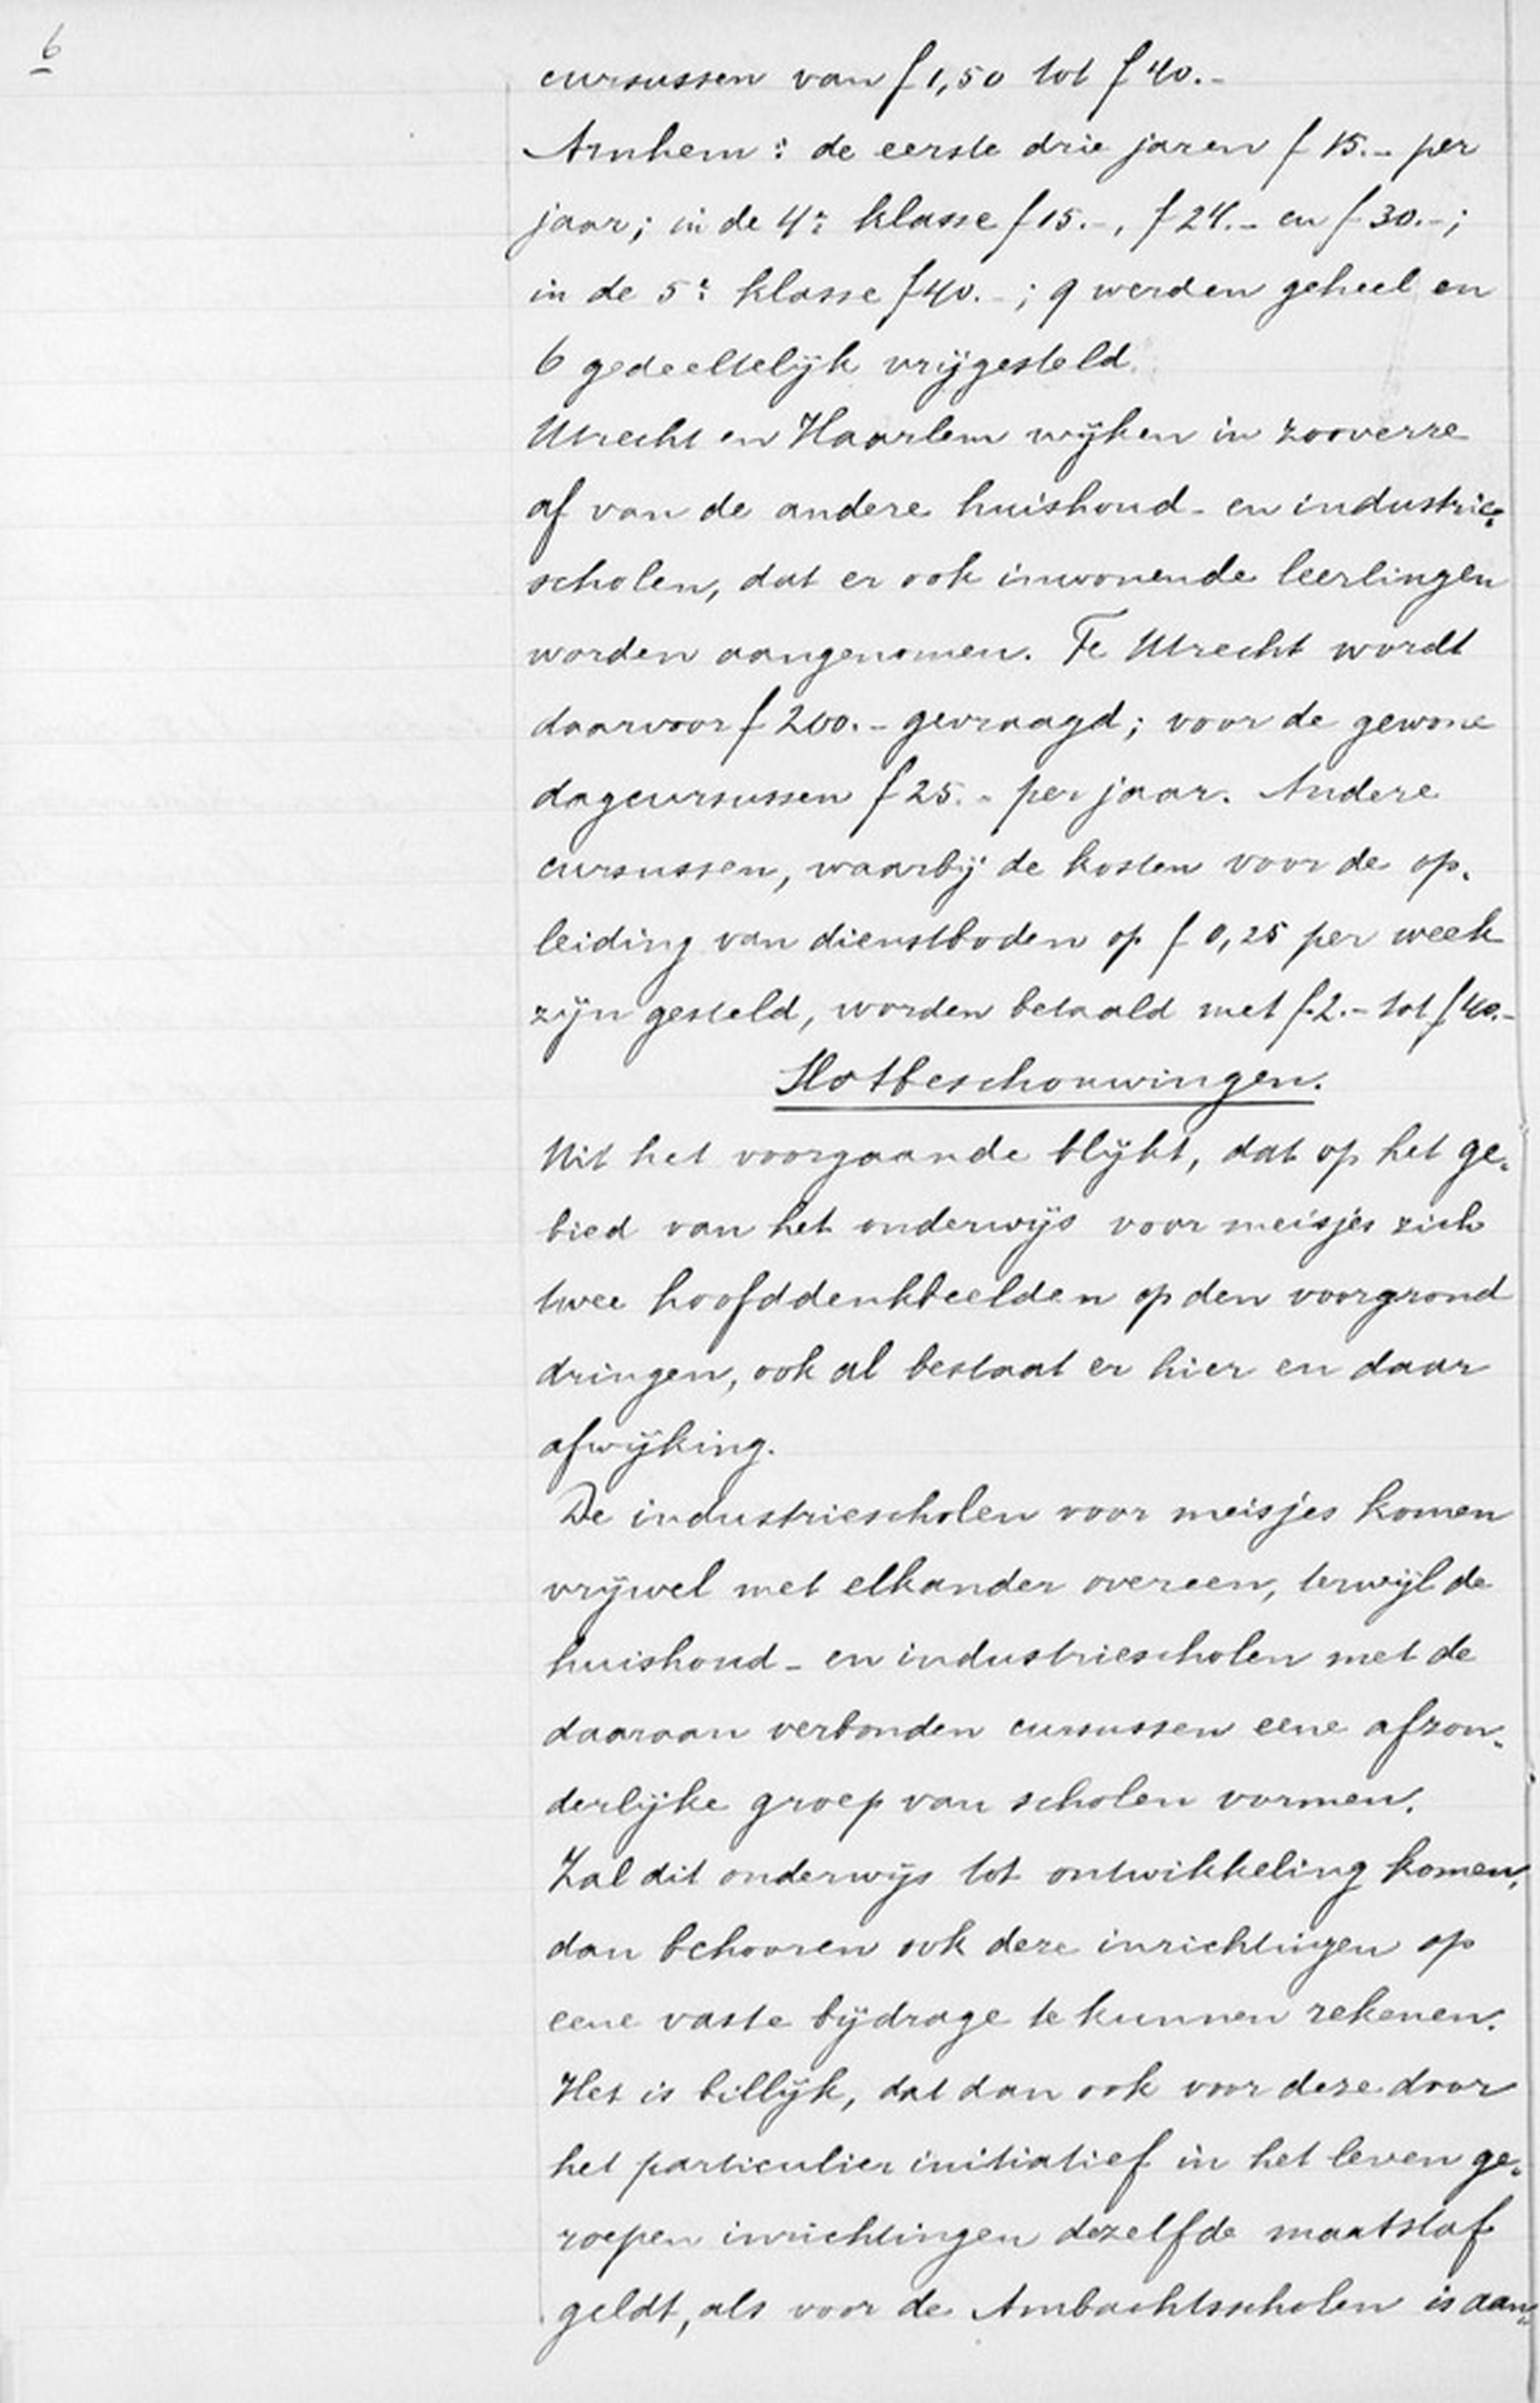 6
cursussen van f 1,50 tot f 40.-
Arnhem: de eerste drie jaren f 15.- per
jaar; in de 4e klasse f 15.-, f 24.- en f 30.-;
in de 5e klasse f 40.-; 9 werden geheel en
6 gedeeltelijk vrijgesteld.
Utrecht en Haarlem wijken in zooverre
af van de andere huishoud- en industrie-
scholen, dat er ook inwonende leerlingen
worden aangenomen. Te Utrecht wordt
daarvoor f 200.- gevraagd; voor de gewone
dagcursussen f 25.- per jaar. Andere
cursussen, waarbij de kosten voor de op-
leiding van dienstboden op f 0,25 per week
zijn gesteld, worden betaald met f 2.- tot f 40.-
Slotbeschouwingen.
Uit het voorgaande blijkt, dat op het ge-
bied van het onderwijs voor meisjes zich
twee hoofddenkbeelden op den voorgrond
dringen, ook al bestaat er hier en daar
afwijking.
De industriescholen voor meisjes komen
vrijwel met elkander overeen, terwijl de
huishoud- en industriescholen met de
daaraan verbonden cursussen eene afzon-
derlijke groep van scholen vormen.
Zal dit onderwijs tot ontwikkeling komen,
dan behooren ook deze inrichtingen op
eene vaste bijdrage te kunnen rekenen.
Het is billijk, dat dan ook voor deze door
het particulier initiatief in het leven ge-
roepen inrichtingen dezelfde maatstaf
geldt, als voor de Ambachtsscholen is aan-